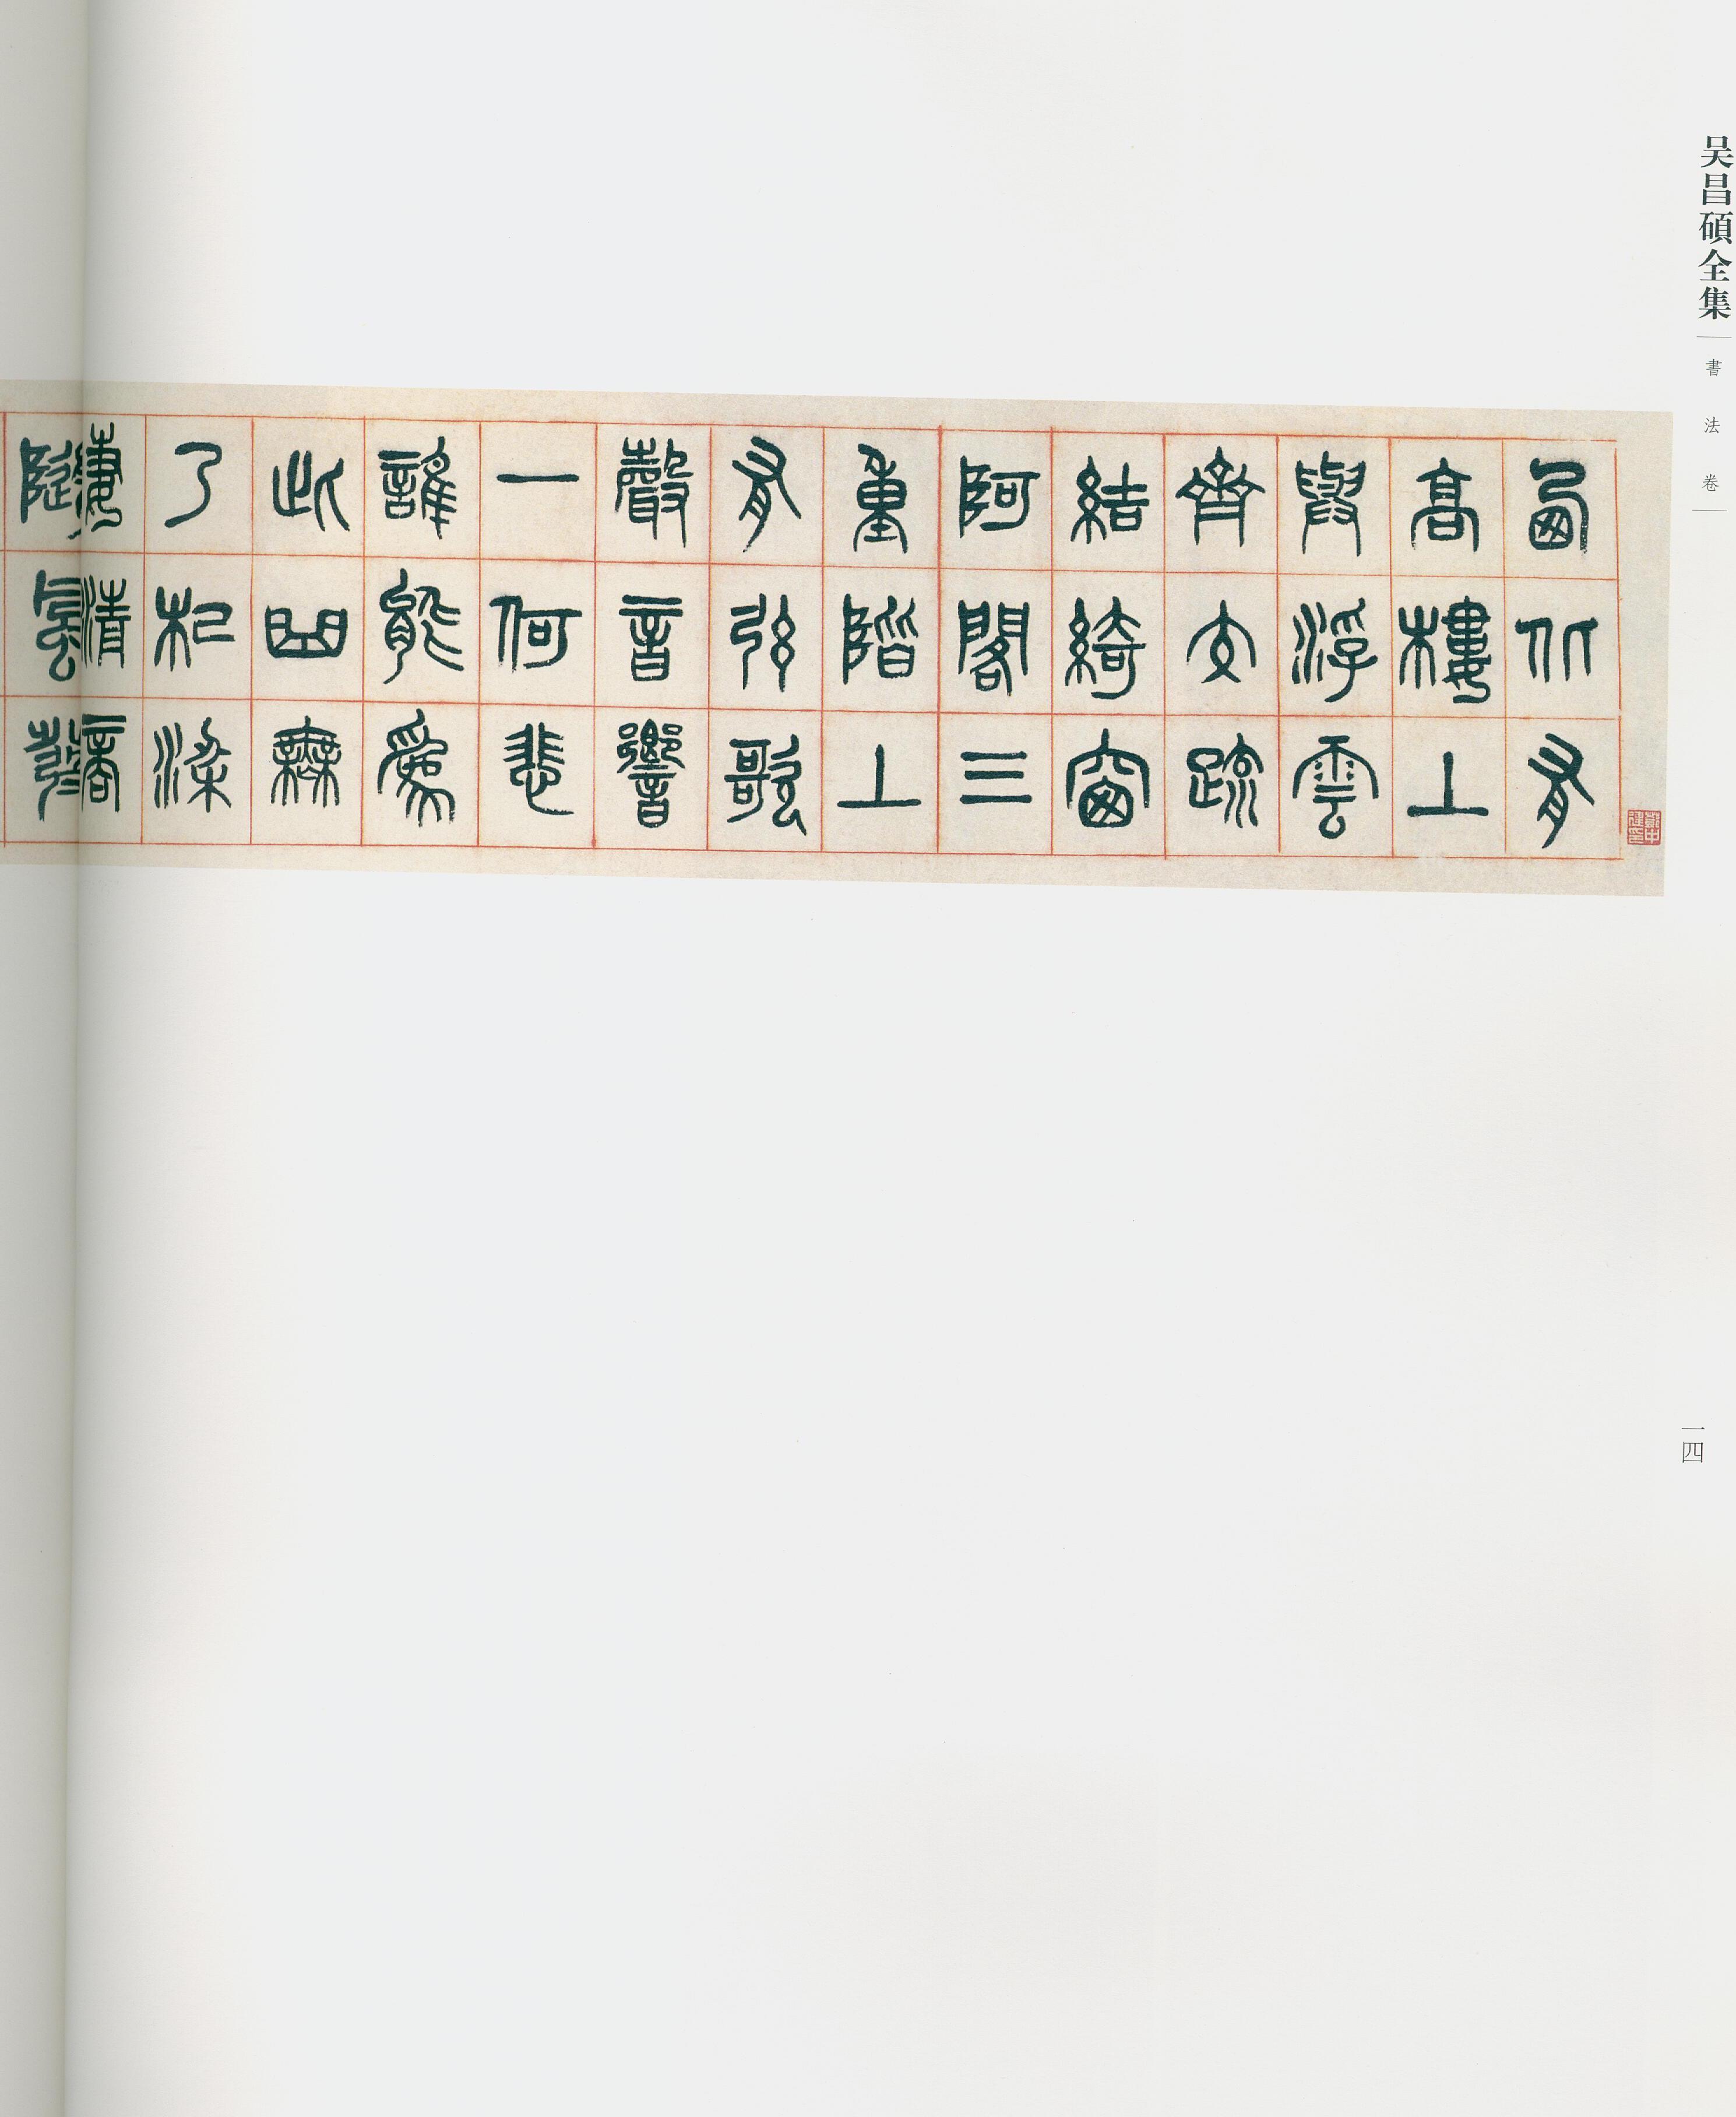 吴昌碩全集
書法卷
西北有
高樓上
與浮雲
齊交疏
結綺窗
阿閣三
重階上
有弦歌
聲音響
一何悲
誰能爲
此曲無
乃杞梁
妻清商
隨風發
一四